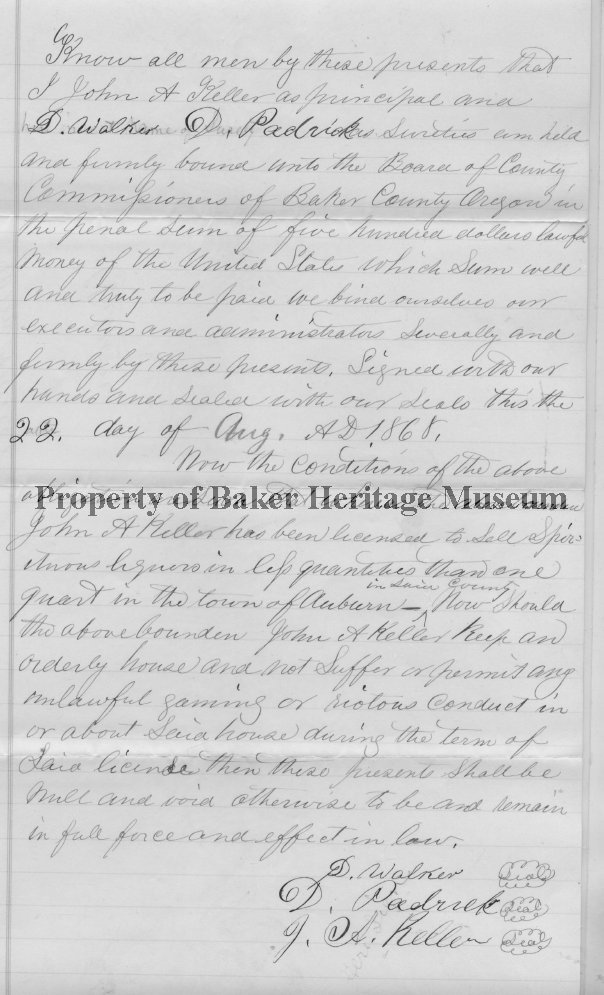 Know all men by these presents that
I John A Keller as principal and
D. Walker D. Padrick as Sureties am held
and firmly bound unto the Board of County
Commissioners of Baker County Oregon in
the penal sum of five hundred dollars lawful
money of the United States which Sum well
and truly to be paid we bind ourselves our
executors and administrators Severally and
firmly by these presents. Signed with our
hands and sealed with our Seals this the
22. day of Aug. AD. 1868.
Now the Conditions of the above
Property of Baker Heritage Museum
John A Keller has been licensed to Sell Spir=
ituous liquors in less quantities than one
in Said County
quart in the town of Auburn – Now Should
the above bounden John A Keller Keep an
orderly house and not Suffer or permit any
unlawful gaming or riotous Conduct in
or about Said house during the term of
Said license then these presents Shall be
null and void otherwise to be and remain
in full force and effect in law.
D. Walker Seal
D. Padrick Seal
J. A. Keller Seal